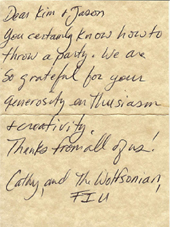 Dear Kim + Jason
You certainly know how to
throw a party. We are
so grateful for your
generosity enthusiasm
+ creativity.
Thanks from all of us!
Cathy, and The Wolfsonian,
FIU